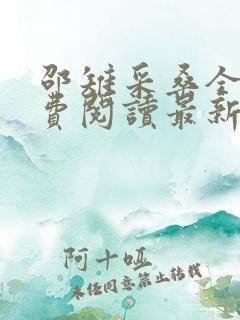 邵雉采桑全
費閱讀最新
阿十哑
未经同意禁止转载